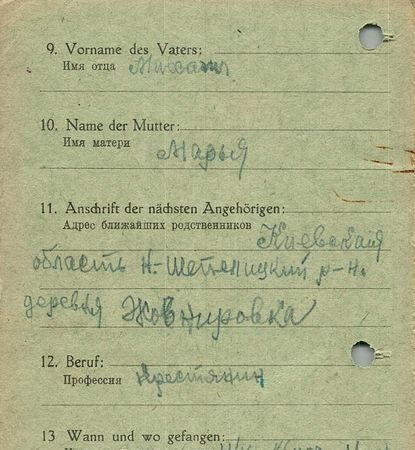 9. Vorname des Vaters:
Имя отца Михаил
10. Name der Mutter:
Имя матери Марья
11. Anschrift der nächsten Angehörigen:
Адрес ближайших родственников Киевская
область Н-Шепелицкий р-н.
деревья Жовнировка
12. Beruf:
Профессия Крестянин
13 Wann und wo gefangen: